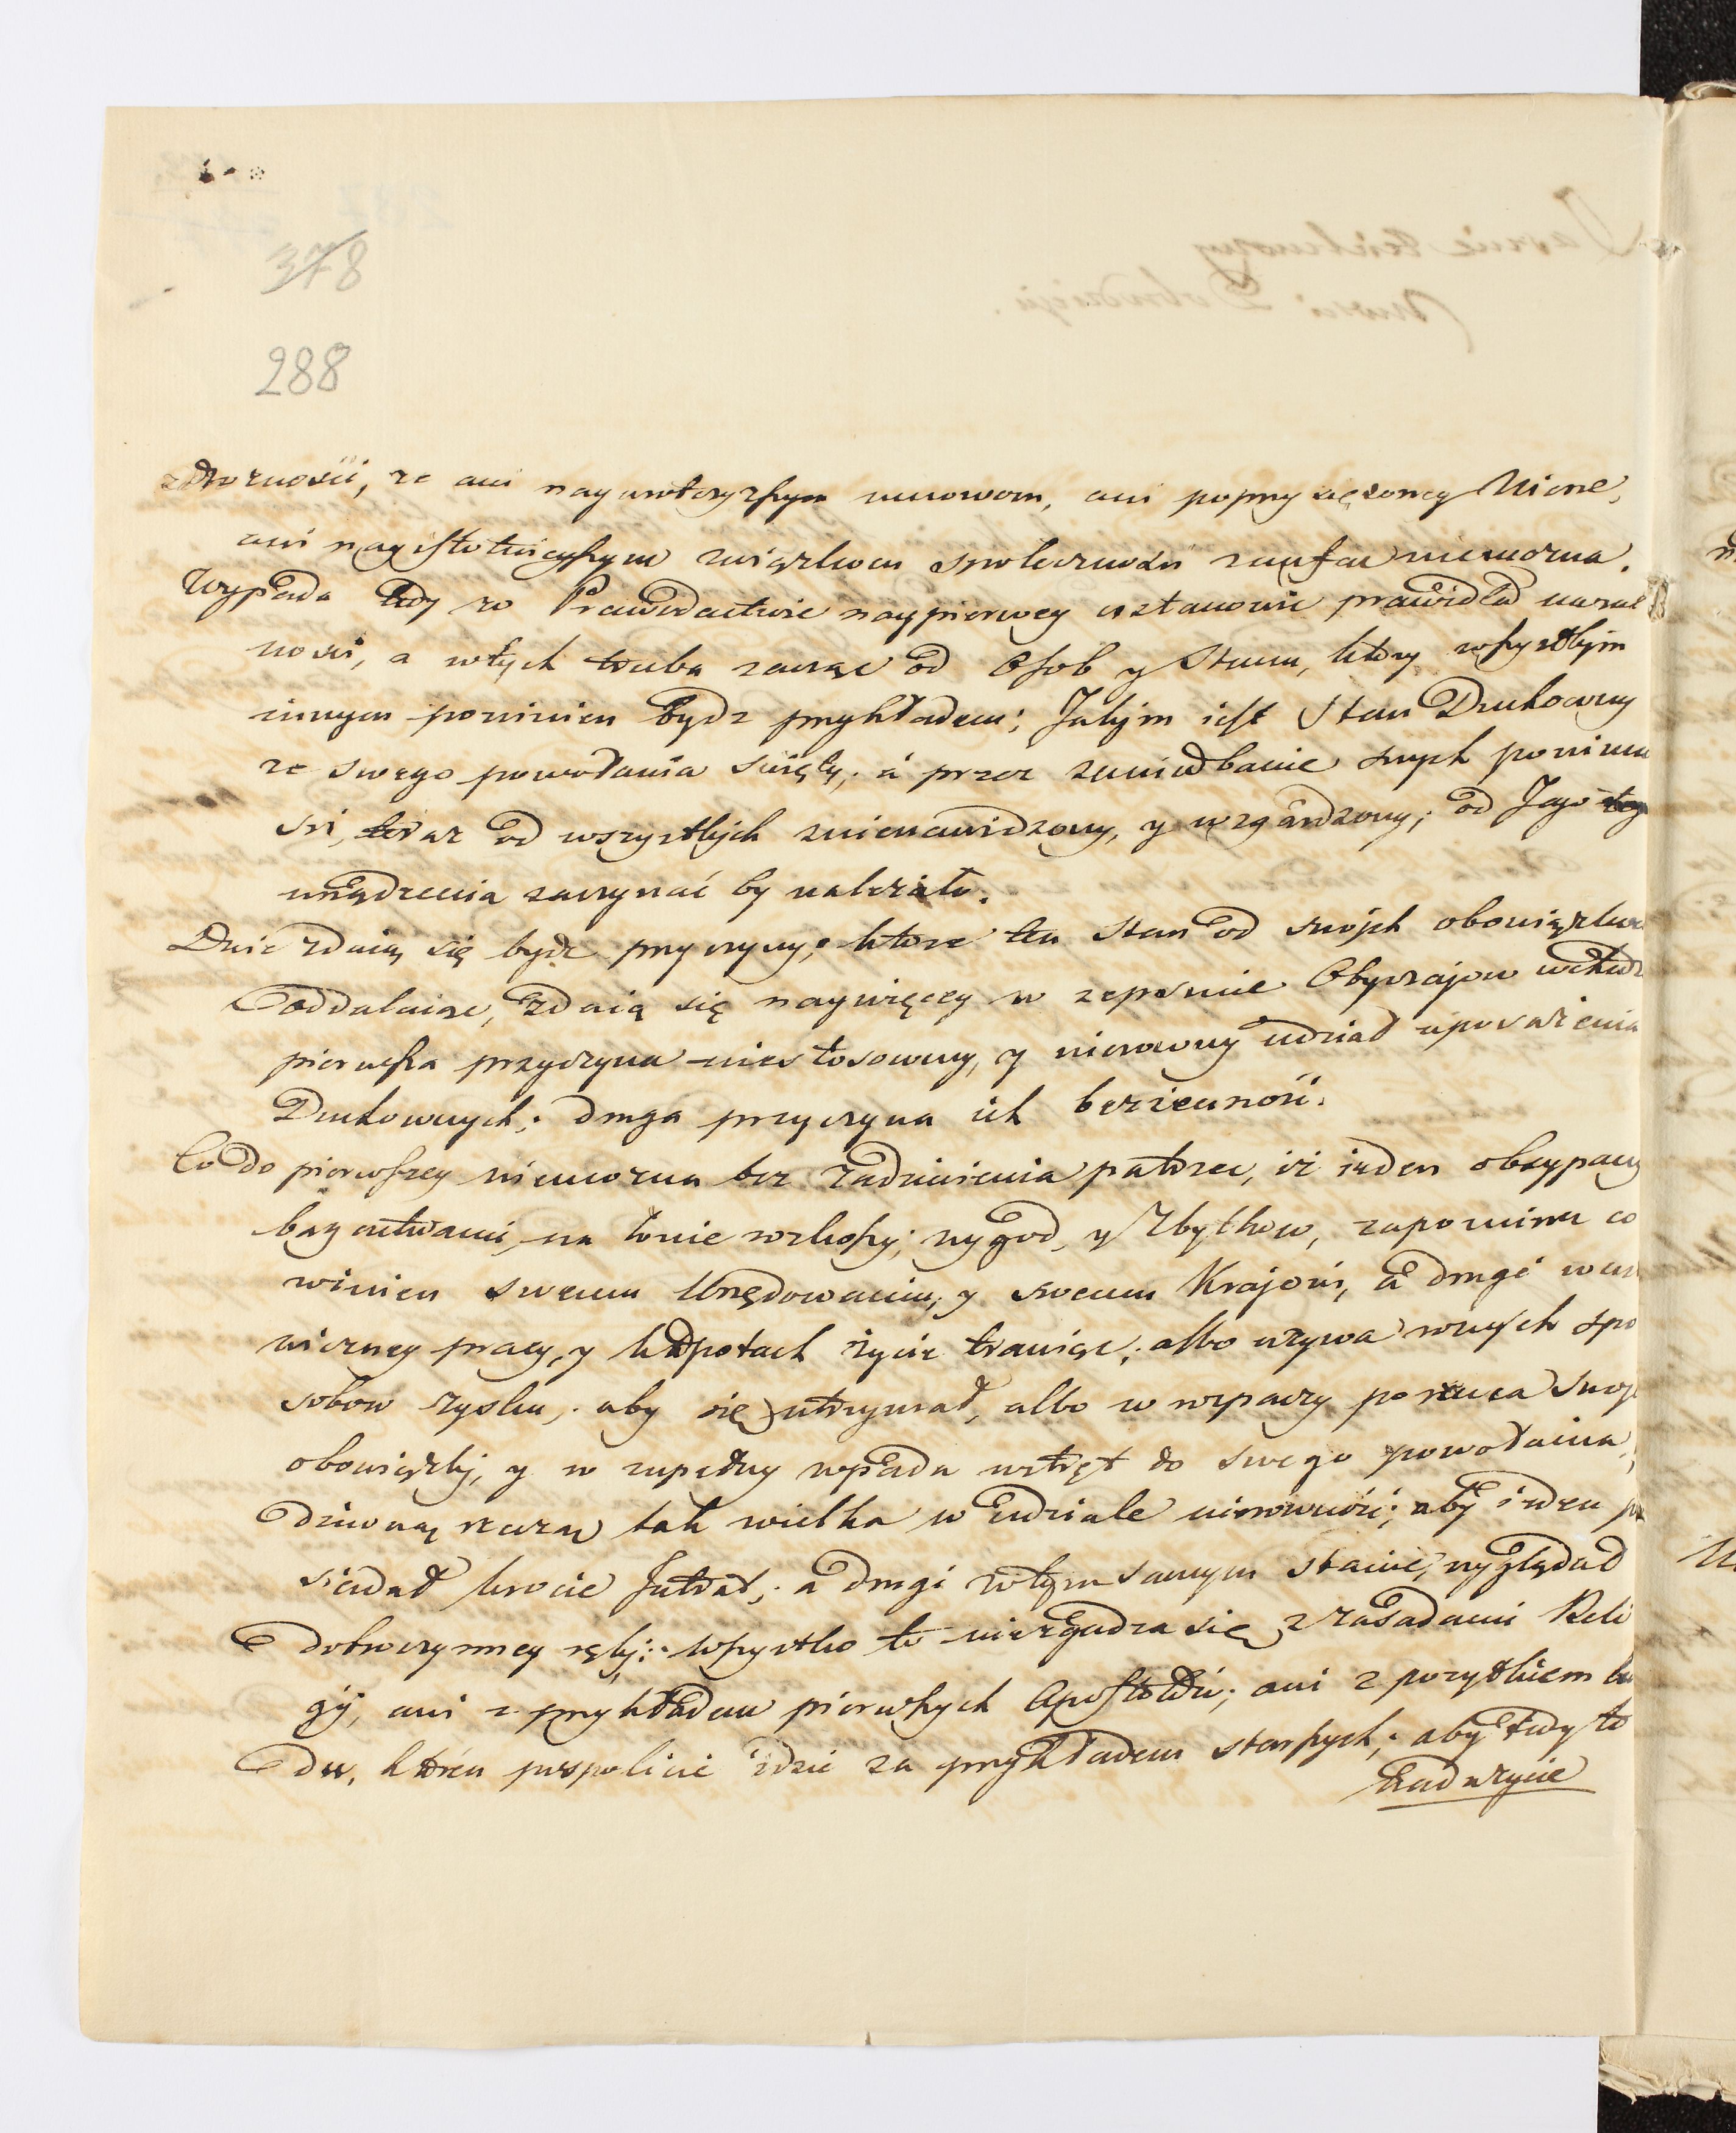 378
288
zdrożności, że ani nayuroczyszszym umowom, ani poprzysięzoney Wierze,
ani nayistotnieyszym związkom społeczności zaufać niemozna.
Wypada tedy w Prawodactwie naypierwey ustanowić prawidła moral
ności, a w tych trzeba zacząć od Osob y Stanu, ktory wszystkim
innym powinien bydz przykładem; Jakim iest Stan Duchowny
ze swego powołania święty; a przez zaniedbanie swych powinno
ści, teraz od wszystkich znienawidzony, y wzgardzony; od Jego
urządzenia zaczynać by należało.
Dwie zdaią się bydz przyczyny; ktore ten Stan od swoich obowiązkow
oddalaiąc, zdaią się naywięcey w zepsucie Obyczajow
pierwsza przyczyna niestosowny, y nierowny udział uposażenia
Duchownych; druga przyczyna ich bezżenność.
Co do pierwszey niemozna bez zadziwienia patrzec, iż ieden obsypany
bogactwami, na łonie roskoszy, wygod, y Zbytkow, zapomina co
winien swemu Urzędowaniu, y swemu Krajowi, a drugi w
wiczney pracy, y kłopotach życie trawiąc; albo używa rożnych spo
sobow zysku, aby się utrzymał, albo w rozpaczy porzuca swoje
obowiązki, y w zupełny wpada wstręt do swego powołania;
dziwną rzeczą tak wielka w udziale nierowność; aby ieden po
siadał krocie Intrat; a drugi w tym samym stanie, wyglądał
dobroczynney ręki: wszystko to niezgadza się z zasadami Reli
gij, ani z przykładem pierwszych Apostołow; ani z pozytkiem lu
du, ktoren pospolicie idzie za przykładem starszych; aby tedy to
nadużycie